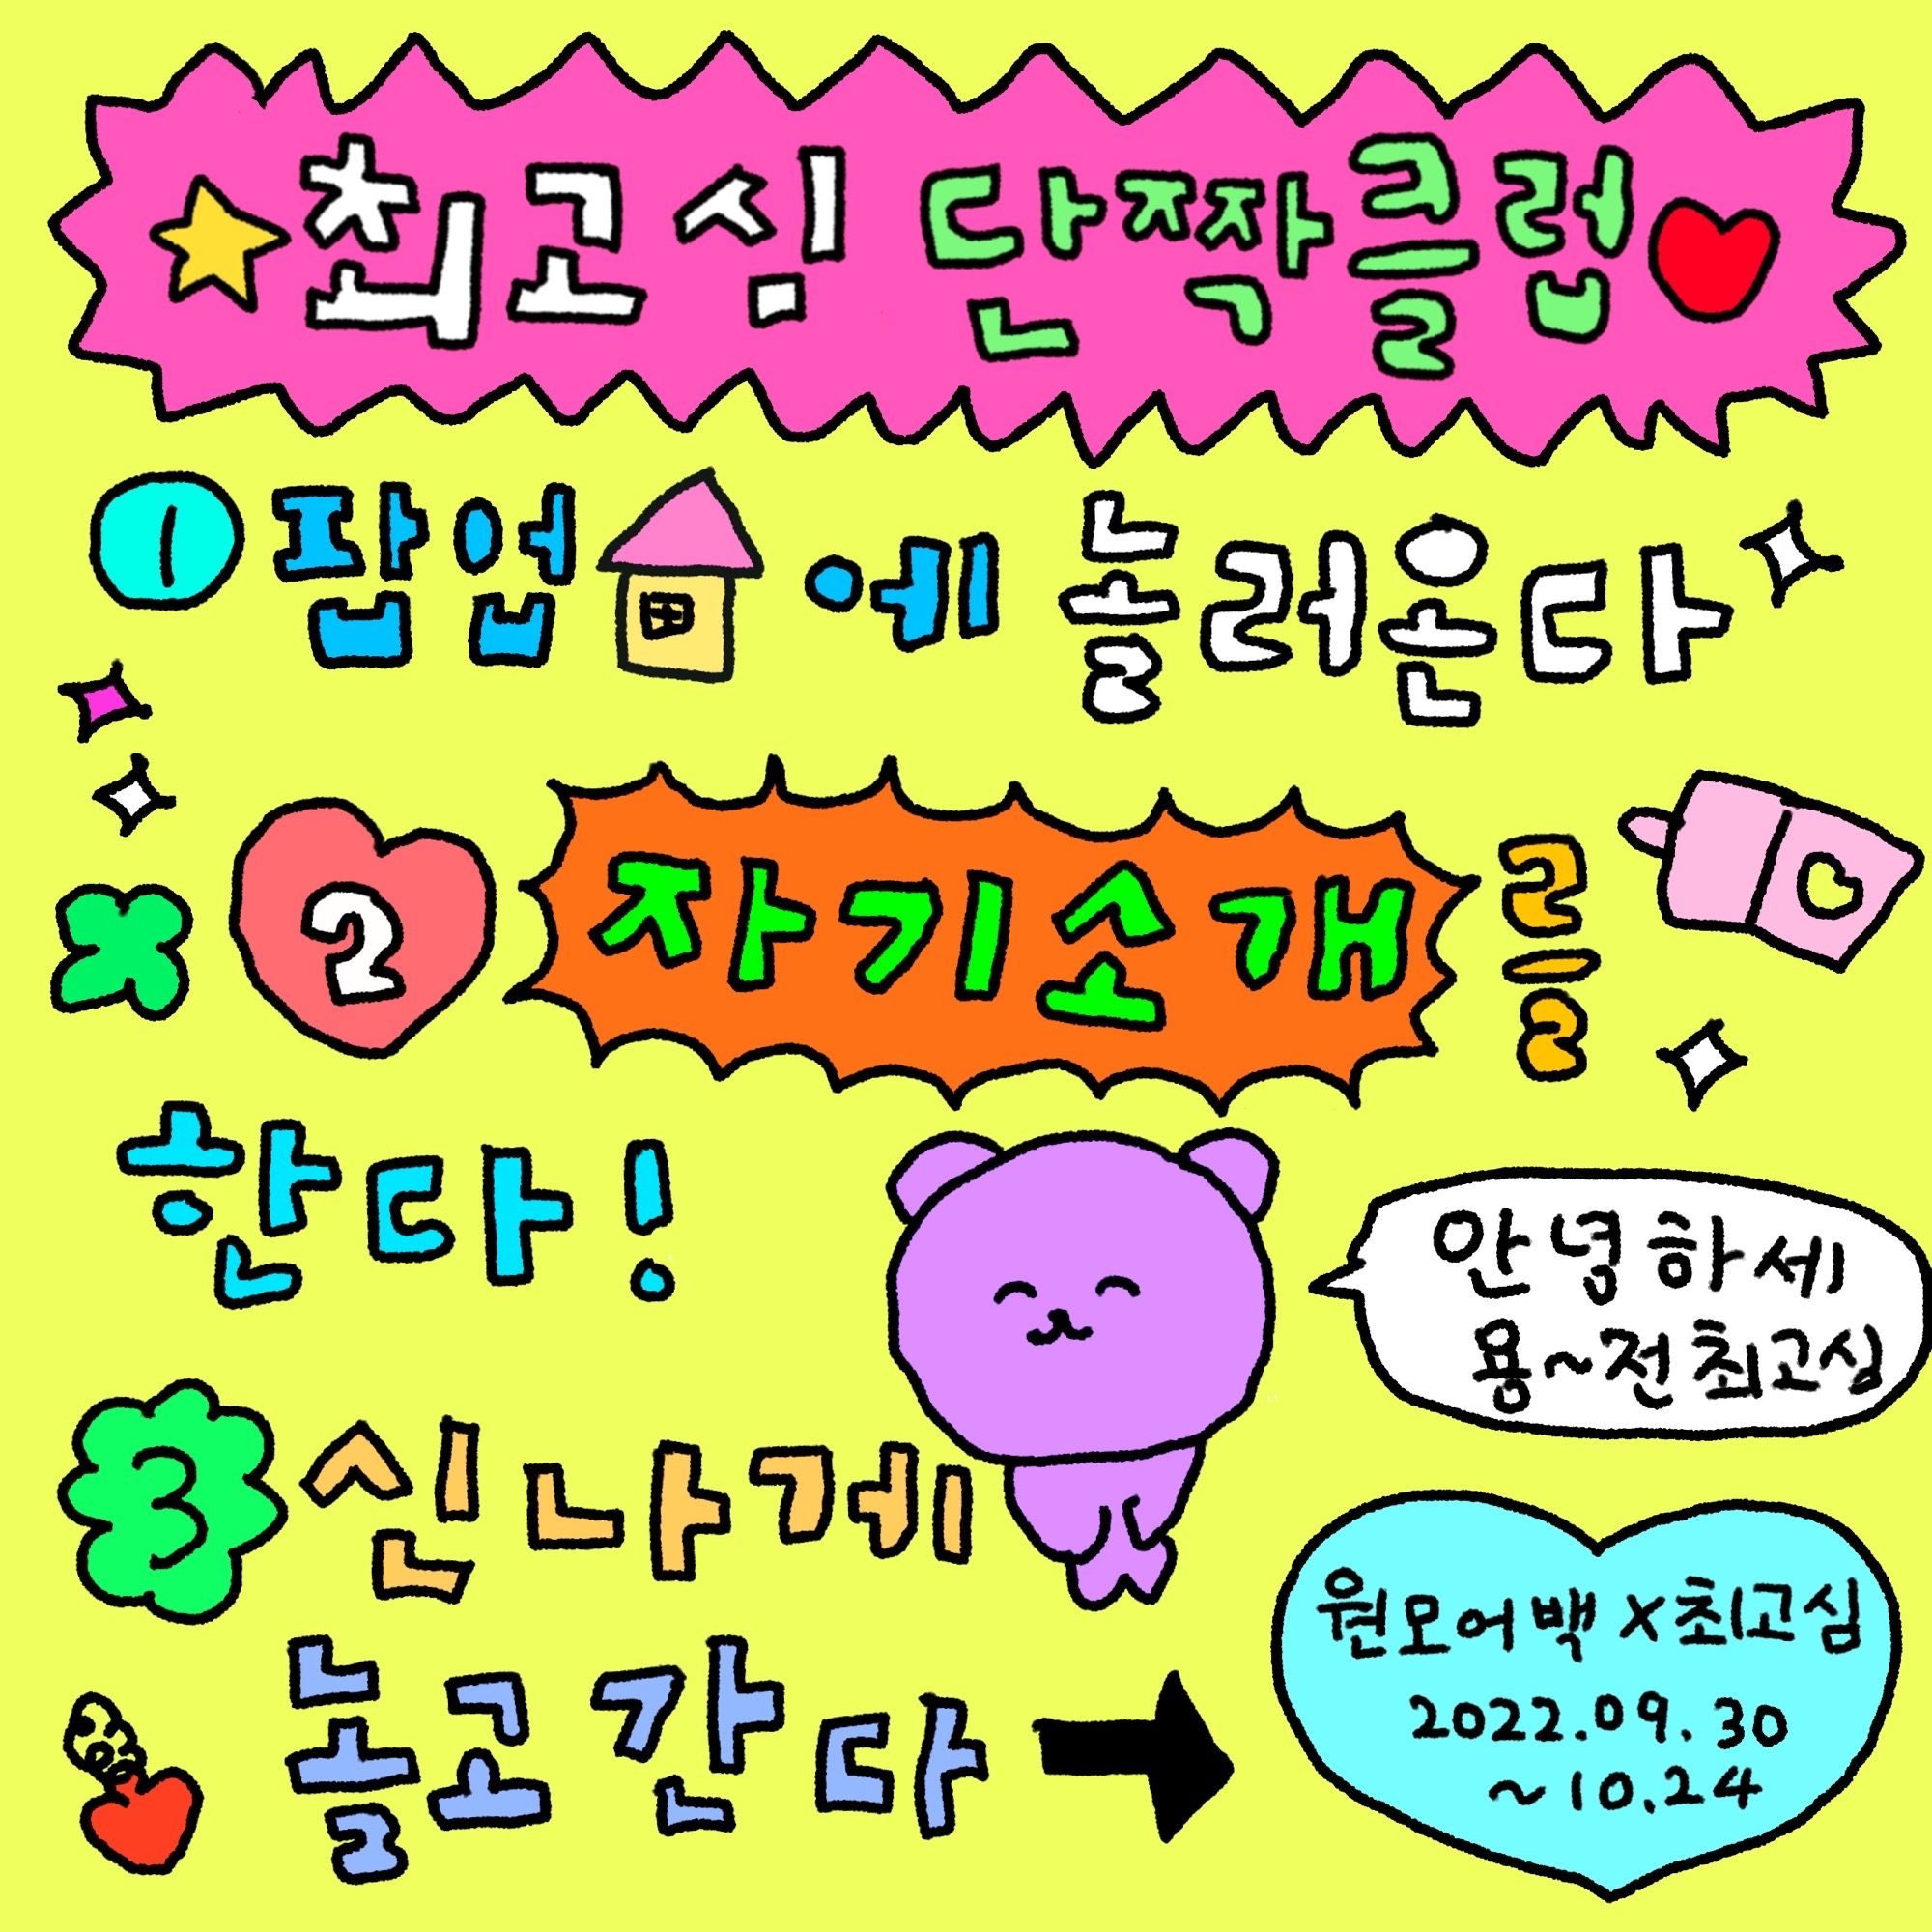 최고심 단짝클럽
1 팝업에 놀러온다
2 자기소개를
한다!
안녕하세
용~전최고심
3 신나게
놀고간다
원모어백X최고심
2022.09.30
~10.24